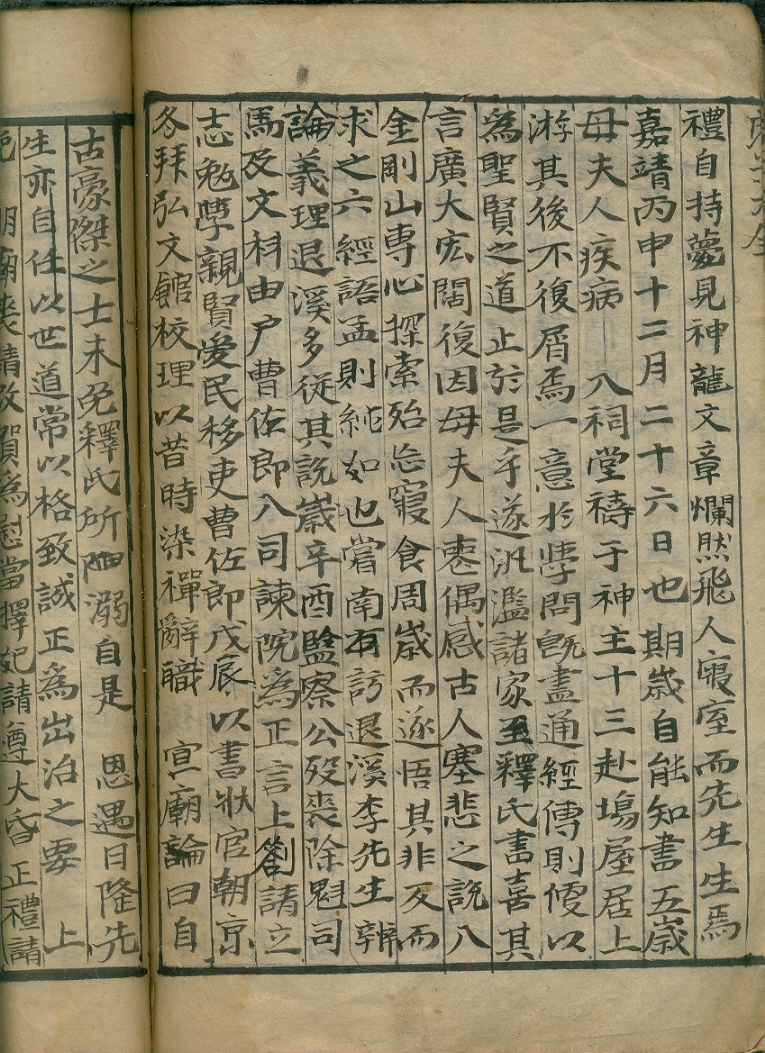 禮自持夢見神龍文章爛然飛入寢室而先生生焉
嘉靖丙申十二月二十六日也期歲自能知書五歲
母夫人疾病 入祠堂禱于神主十三赴場屋居上
游其後不復屑焉一意於學問旣盡通經傳則慢以
爲聖賢之道止於是乎遂汎濫諸家至釋氏書喜其
言廣大宏闊復因母夫人喪偶感古人塞悲之說入
金剛山專心探索殆忘寢食周歲而遂悟其非反而
求之六經語孟則純如也嘗南有訪退溪李先生辨
論義理退溪多從其說歲辛酉監察公歿喪除魁司
馬及文科由戶曹佐郎入司諫院爲正言上劄請立
志勉學親賢愛民移吏曹佐郎戊辰以書狀官朝京
多拜弘文館校理以昔時染禪辭職 宣廟諭曰自
古豪傑之士未免釋氏所陷溺自是 恩遇日隆先
生亦自任以世道常以格致誠正爲出治之要 上
喪請改賀爲慰當擇妃請遵大昏正禮請